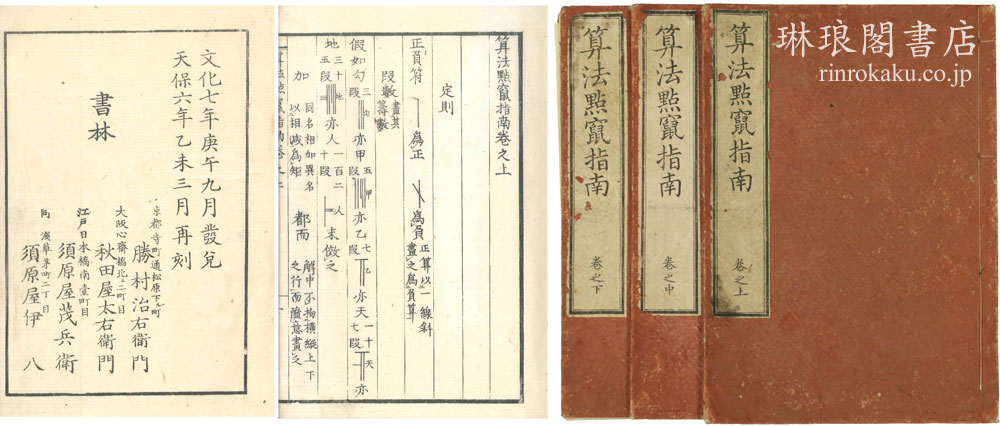 文化七年庚午九月發兌
天保六年乙未三月再刻
書林
京都寺町通松原下ル町
勝村治右衛門
大阪心齋橋北二町目
秋田屋太右衛門
江戸日本橋南壹町目
須原屋茂兵衛
同淺草茅町二丁目
須原屋伊八
算法點竄指南卷之上
定則
正負符 爲正 爲負 正算以一線斜畫之爲負算
段數 畫其籌數
假如勾三段 亦甲五段 亦乙七段 亦天一十七段 亦
地三十五段 亦人一百二十段 末倣之
加 同名相加異名以相减爲矩
都而 解中不拘横縦上下之行而隨意畫之
算法點竄指南
卷之下
算法點竄指南
卷之中
算法點竄指南
卷之上
琳琅閣書店
rinrokaku.co.jp